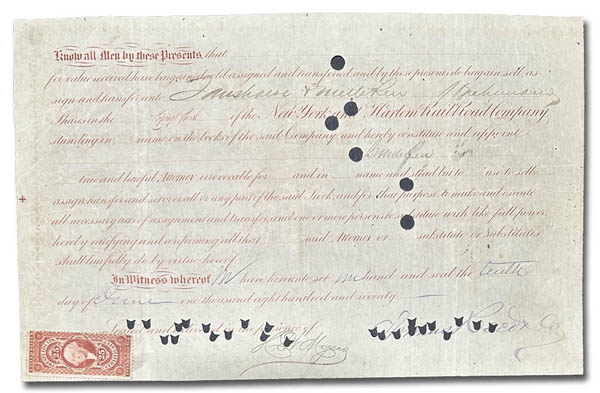 Know all Men by these Presents, that
for value received have bargained, sold, assigned and transferred and by these presents do bargain, sell, as-
sign and transfer unto
Shares in the Capital Stock of the New York and Harlem Rail Road Company,
standing in name on the books of the said Company and hereby constitute and appoint
true and lawful Attorney irrevocable for and in name and stead but to use to sell
assign transfer and set over all or any part of the said Stock and for that purpose to make and execute
all necessary acts of assignment and transfer, and one or more persons to substitute with like full power,
hereby ratifying and confirming all that said Attorney or substitute or Substitutes
shall lawfully do by virtue hereof.
In Witness whereof We have hereunto set our hand and seal the tenth
day of June one thousand eight hundred and seventy
Sealed and delivered in the presence of
25 25